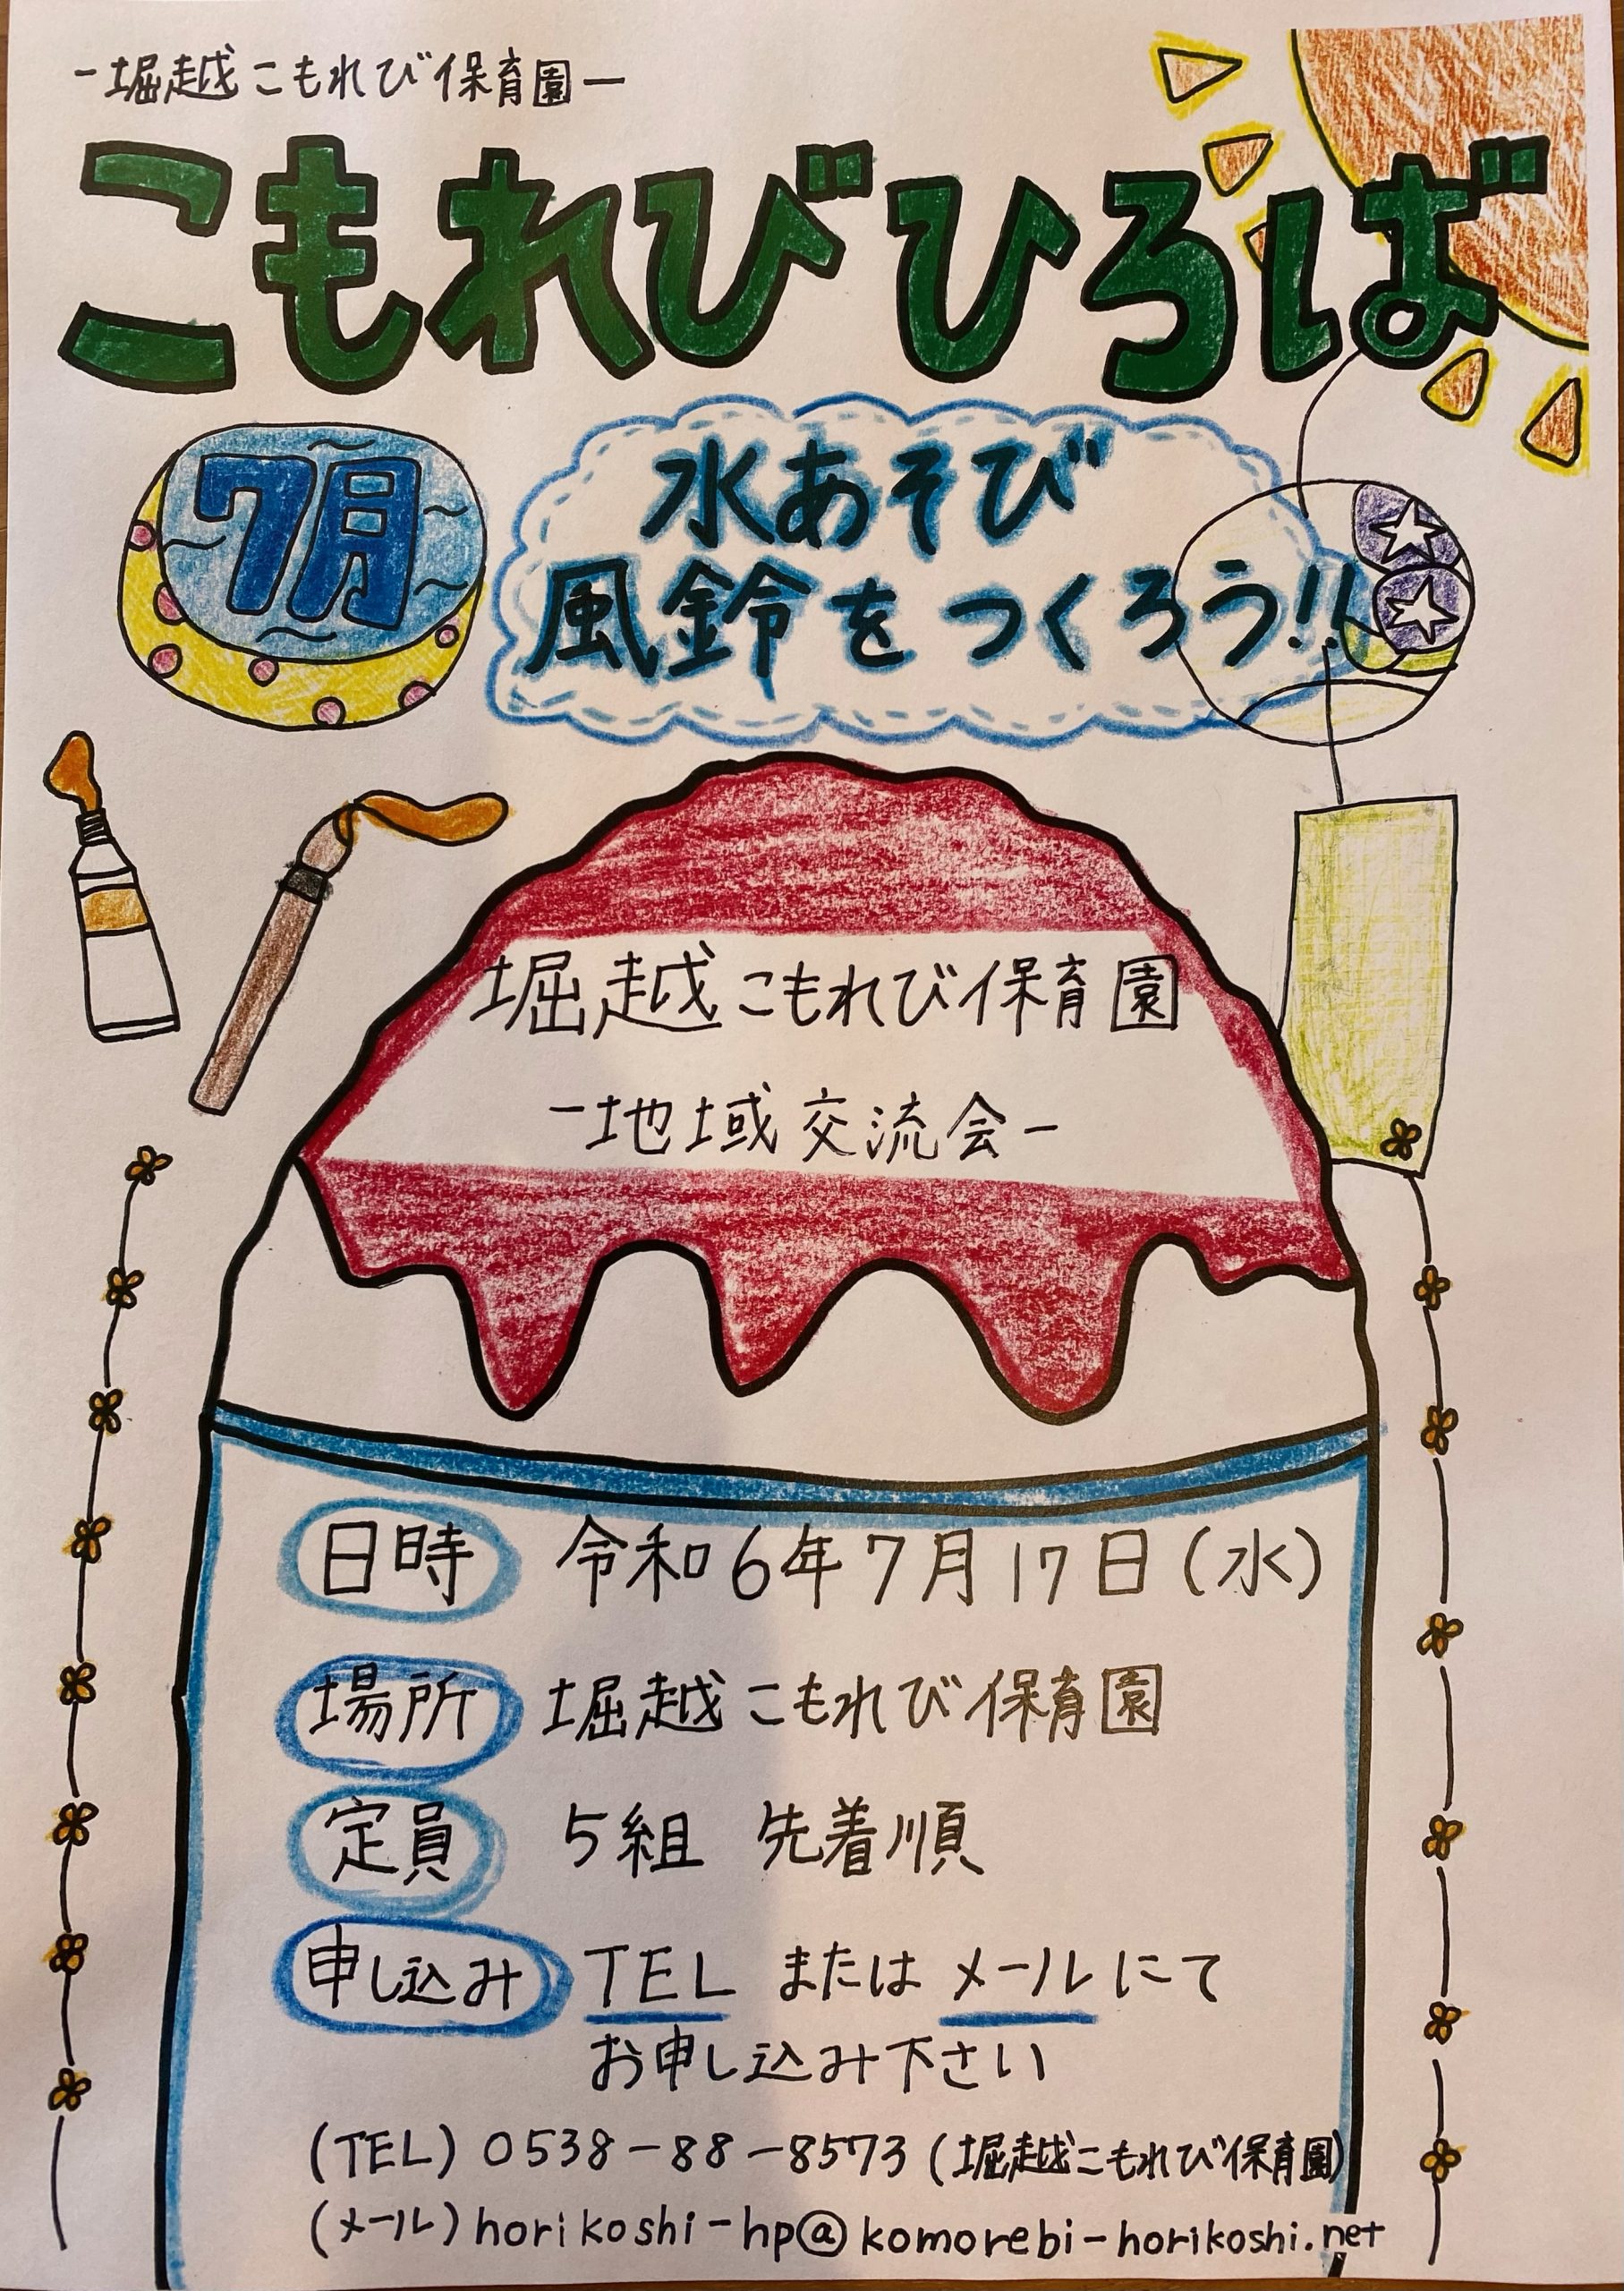 -堀越こもれび保育園-
こもれびひろば
7月
水あそび
風鈴をつくろう!!
堀越こもれび保育園
-地域交流会-
日時 令和6年7月17日(水)
場所 堀越こもれび保育園
定員 5組 先着順
申し込み TELまたはメールにて
お申し込み下さい
(TEL) 0538-88-8573 (堀越こもれび保育園)
(メール) horikoshi-hp@komorebi-horikoshi.net